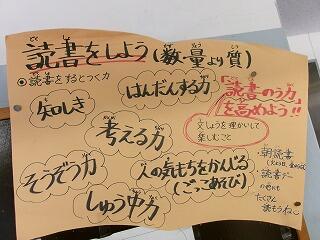 読書をしよう(数量より質)
◎読書をするとつく力
はんだんする力
知しき
「読書の力」
を高めよう!!
考える力
文しょうを理かいして
楽しむこと
そうぞう力
人の気もちをかんじる
(ごっこあそび)
しゅう中力
朝読書
読書デー
の他にも
たくさん
読もうね